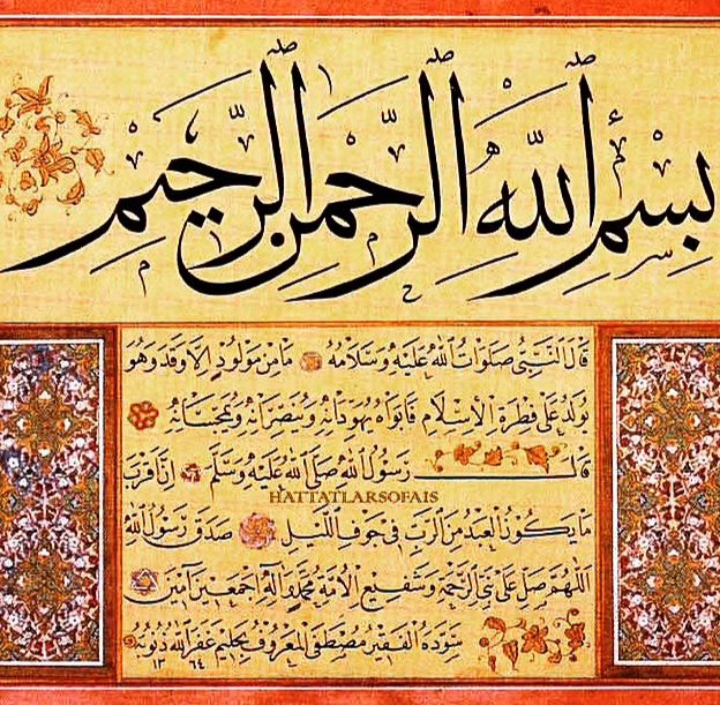 بِسْمِ ٱللّٰهِ ٱلرَّحْمٰنِ ٱلرَّحِيمِ
قَالَ ٱلنَّبِيُّ صَلَوَاتُ ٱللّٰهِ عَلَيْهِ وَسَلَامُهُ مَا مِنْ مَوْلُودٍ اِلَّا وَقَدْ وَهُوَ
يُولَدُ عَلَى فِطْرَةِ ٱلْاِسْلَامِ فَابَوَاهُ يُهَوِّدَانِهِ وَيُنَصِّرَانِهِ وَيُمَجِّسَانِهِ
قَالَ رَسُولُ ٱللّٰهِ صَلَّى ٱللّٰهُ عَلَيْهِ وَسَلَّمَ اِنَّ اَقْرَبَ
HATTATLARSOFAIS
مَا يَكُونُ ٱلْعَبْدُ مِنَ ٱلرَّبِّ فِي جَوْفِ ٱللَّيْلِ صَدَقَ رَسُولُ ٱللّٰهِ
اَللّٰهُمَّ صَلِّ عَلَى نَبِيِّ ٱلرَّحْمَةِ وَشَفِيعِ ٱلْاُمَّةِ مُحَمَّدٍ وَآلِهِ اَجْمَعِينَ آمِينَ
سَوَّدَهُ ٱلْفَقِيرُ مُصْطَفَى ٱلْمَعْرُوفُ بِحَلِيمٍ غَفَرَ ٱللّٰهُ ذُنُوبَهُ
١٣٦٤